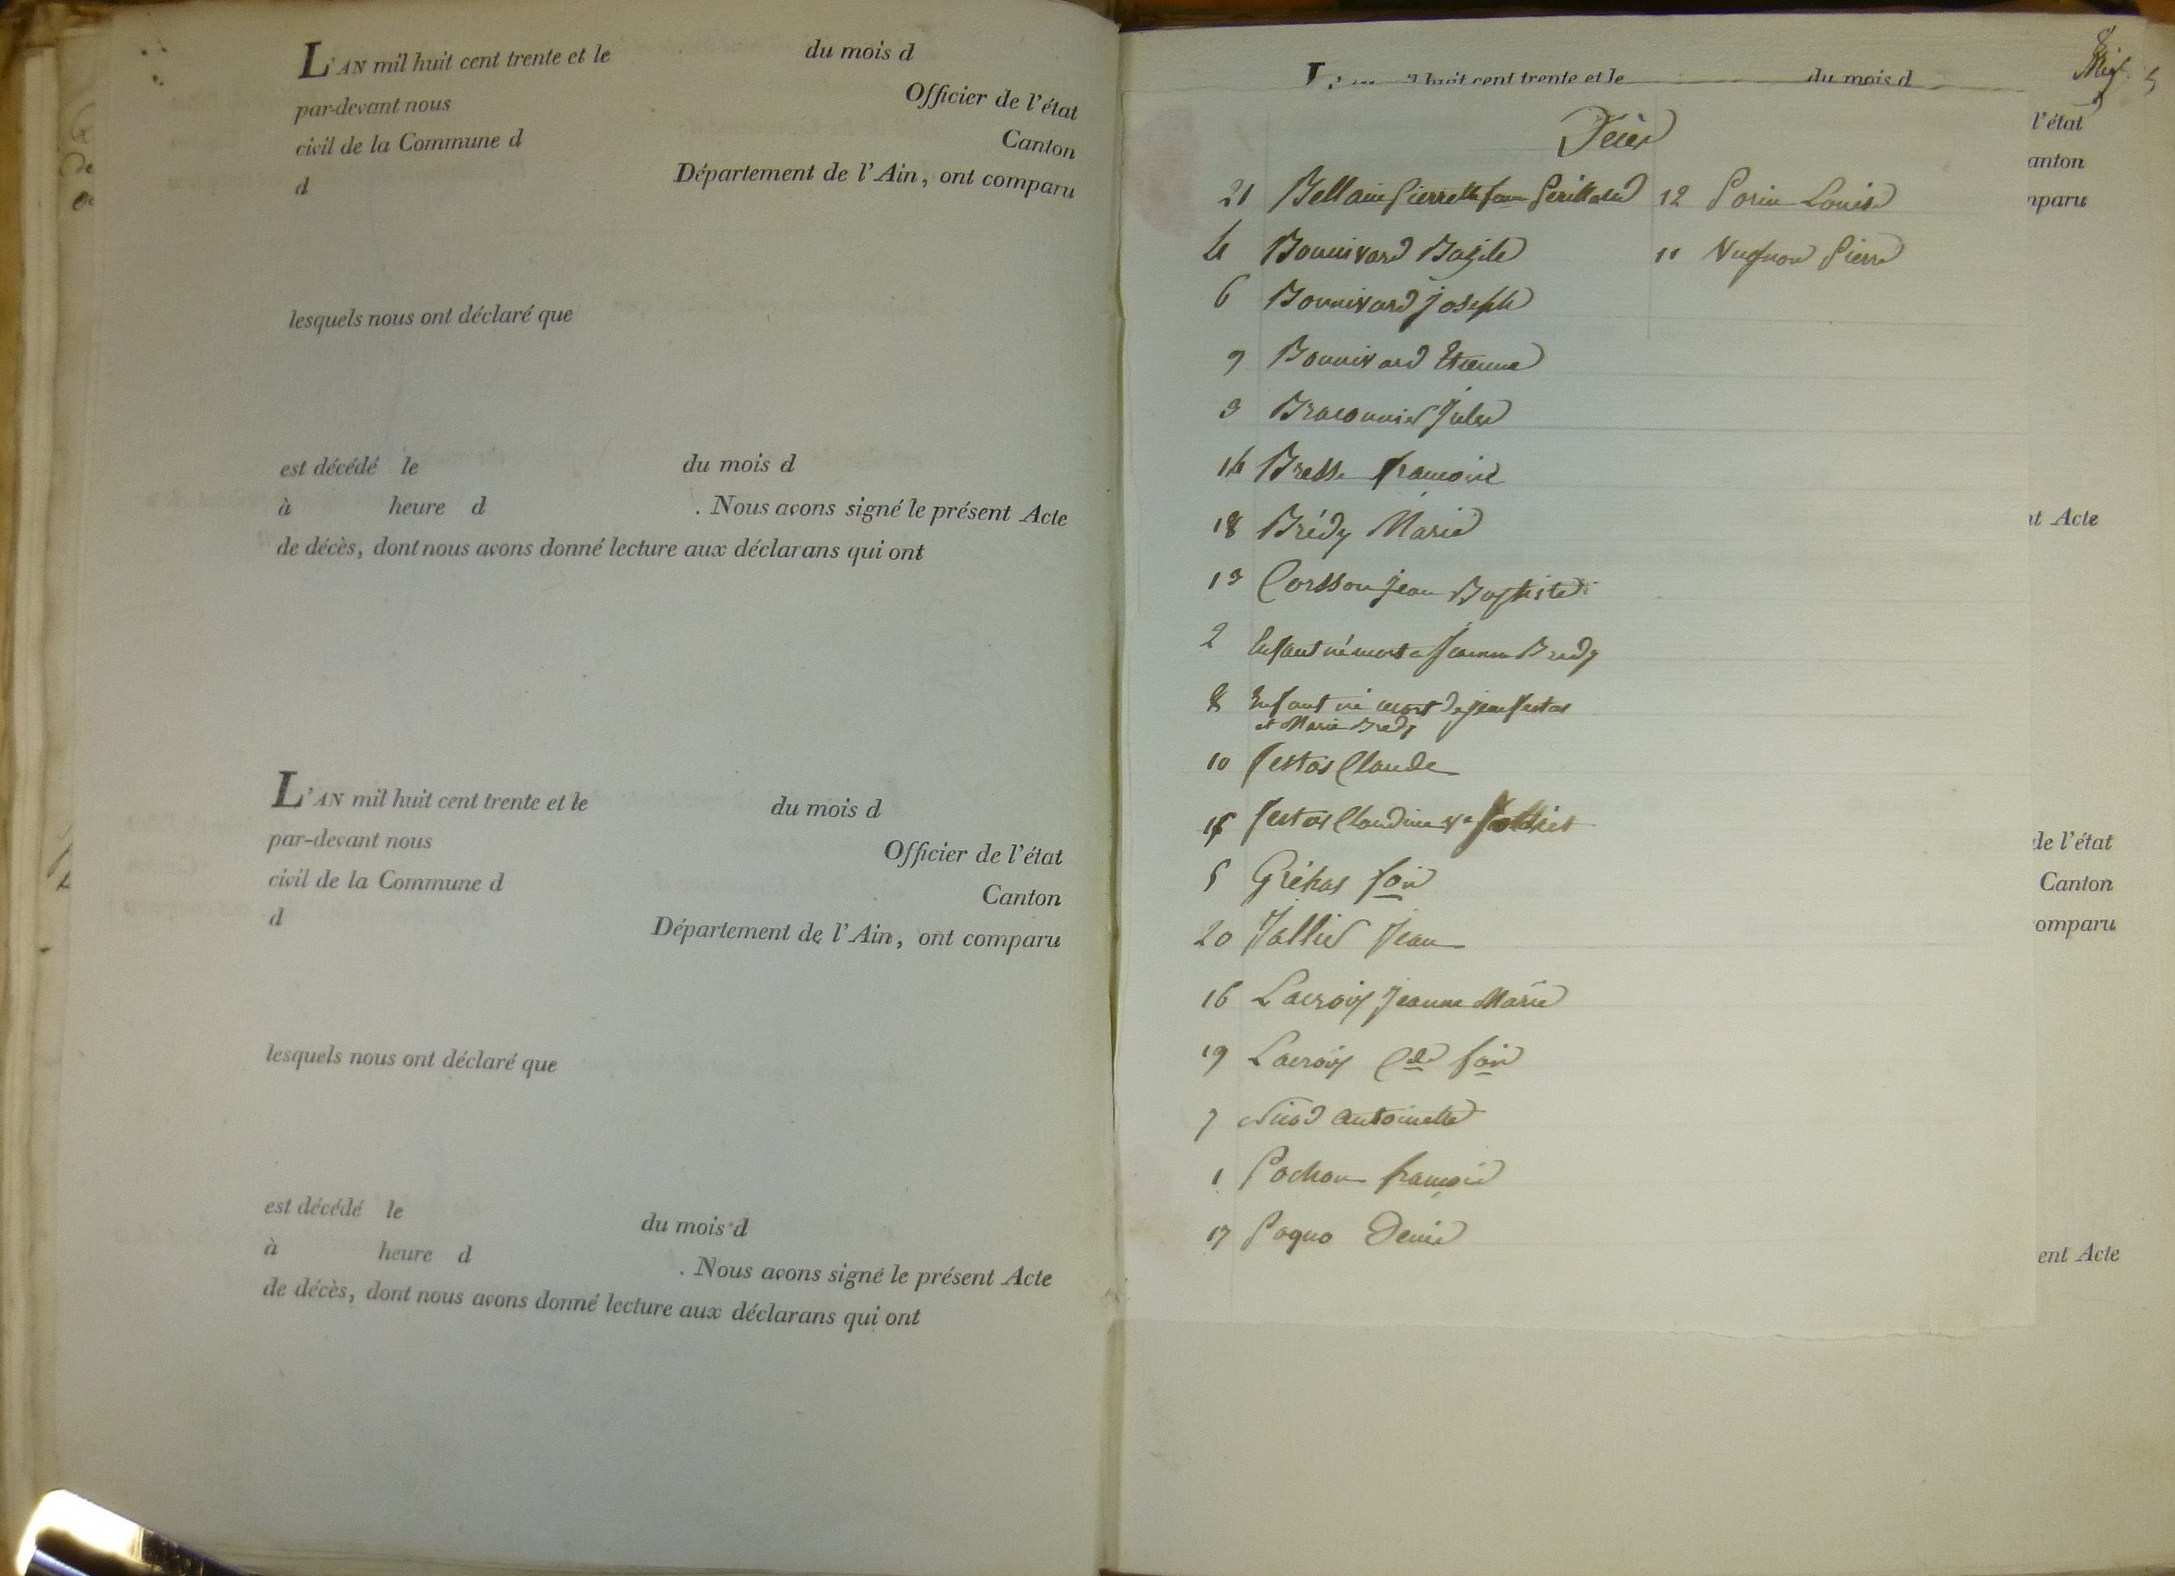 L'AN mil huit cent trente et le du mois d
par-devant nous Officier de l'état
civil de la Commune d Canton
d Département de l'Ain, ont comparu
lesquels nous ont déclaré que
est décédé le du mois d
à heure d . Nous avons signé le présent Acte
de décès, dont nous avons donné lecture aux déclarans qui ont
L'AN mil huit cent trente et le du mois d
par-devant nous Officier de l'état
civil de la Commune d Canton
d Département de l'Ain, ont comparu
lesquels nous ont déclaré que
est décédé le du mois d
à heure d . Nous avons signé le présent Acte
de décès, dont nous avons donné lecture aux déclarans qui ont
huit cent trente et le du mois d
l'état
anton
mparu
Décès
21 Bellain Pierrette
4 Bonnivard Bazile
6 Bonnivard joseph
9 Bonnivard Etienne
3 Braconnier Jules
14 Bresse françois
18 Brédy Marie
13 Corsson jean Baptiste
2 Enfant né mort a Jeanne Bredy
8 Enfant né mort de jean festas
et Marie Bredy
10 festas Claude
15 festas Claudine ve Jollliet
5 Gréhas fois
20 Jallier Jean
16 Lacroix Jeanne Marie
19 Lacroix Cde fois
7 Niod Antoinette
1 Pochon françois
17 Pogno Denis
12 Porin Louis
11 Vugnon Pierre
nt Acte
de l'état
Canton
omparu
ent Acte